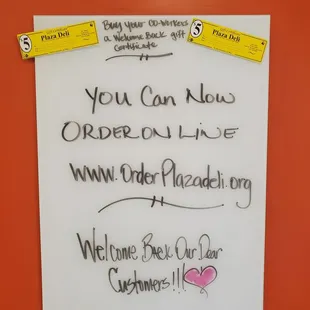 Buy your co-workers
a Welcome Back gift
Certificate
5
Plaza Deli
5
Plaza Deli
You Can Now
ORDER ON LINE
www.OrderPlazadeli.org
Welcome Back Our Dear
Customers!!!